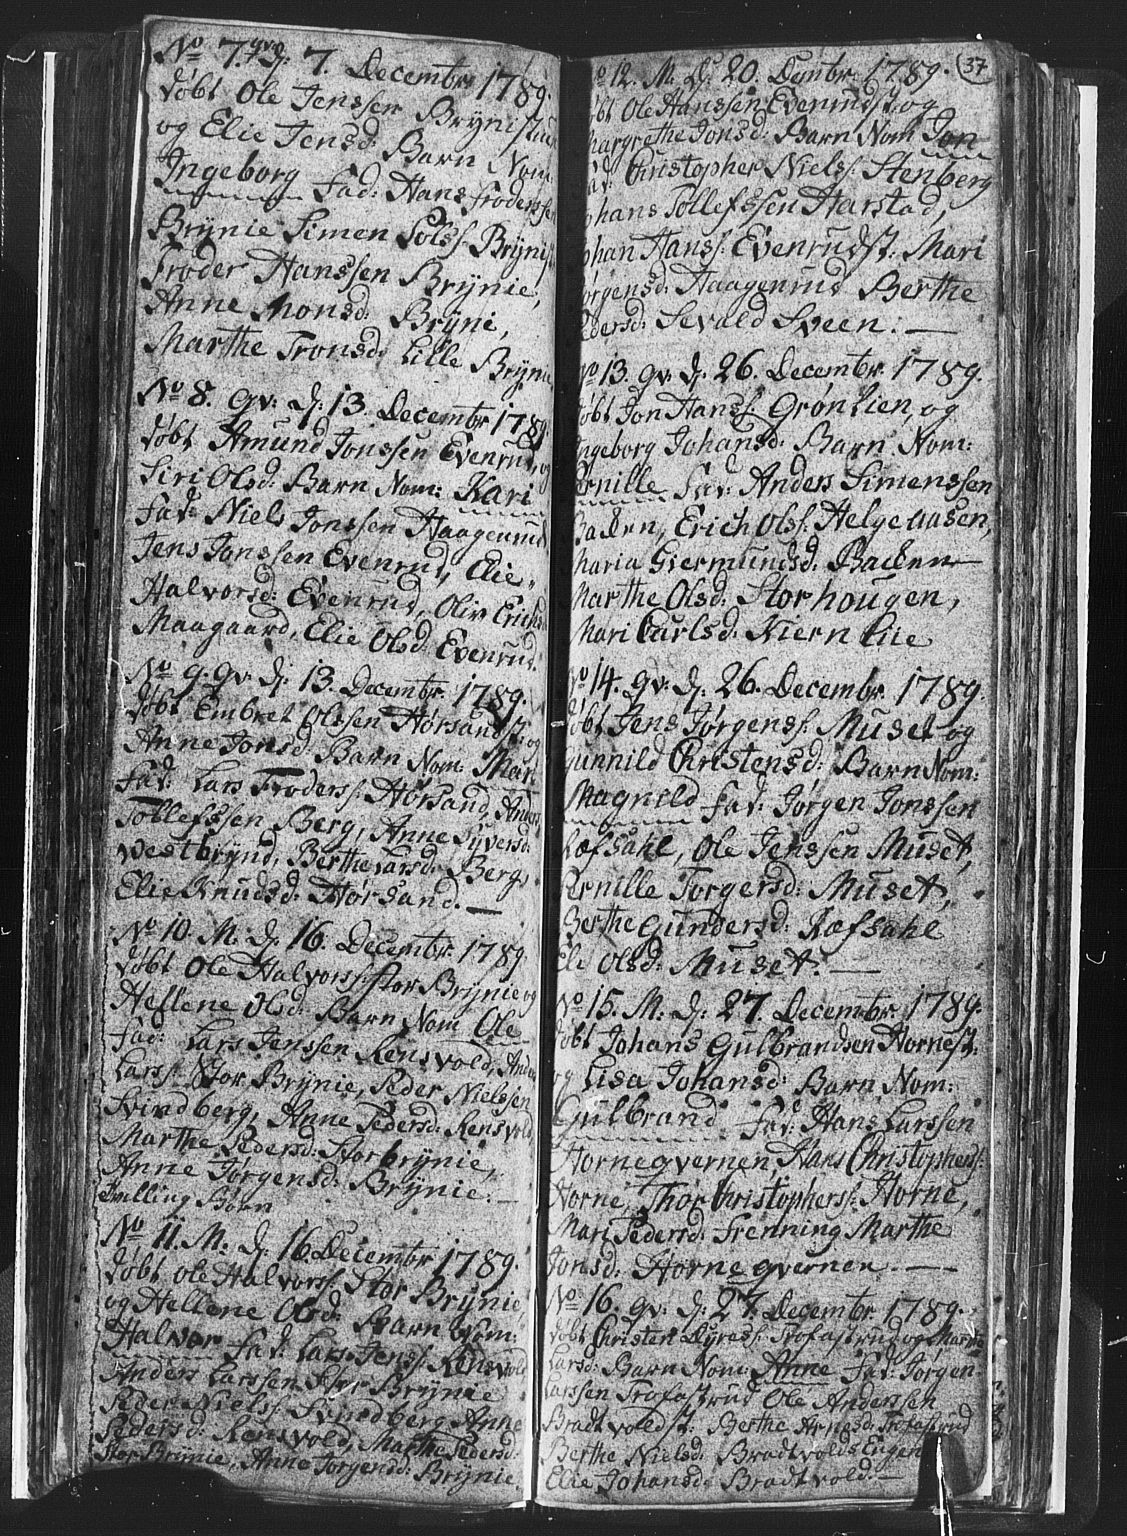 No 7. qv: D: 7. Decembr 1789.
døbt Ole Jenssen Brÿnistuen
og Elie Jensd: Barn Nom:
Ingeborg Fad: Hans Froderssen
Brÿnie Simen Polss: Brÿnist:
Froder Hanssen Brÿnie,
Anne Monsd: Brÿni,
Marthe Tronsd: Lille Brÿnie
No 8. qv: D: 13. Decembr 1789.
døbt Amund Jonssen Evenrud, og
Siri Olsd: Barn Nom: Kari
Fad: Niels Jonssen Haagenrud
Jens Jonssen Evenrud, Elie
Halvorsd: Evenrud, Oliv Erichsd:
Maagaard, Elie Olsd: Evenrud.
No 9. qv: D: 13. Decembr 1789.
døbt Embret Olssen Hørsandst: og
Anne Jonsd: Barn Nom: Mari
Fad: Lars Froderss: Hørsand, Anders
Tollefssen Berg, Anne Syversd:
Westbrÿnd, Berthe Larsd: Berg,
Elie Knudsd: Hørsand.
No 10. M: D: 16. Decembr. 1789.
døbt Ole Halvorss: Stor Brÿnie og
Hellene Olsd: Barn Nom Ole
Fad: Lars Jenssen Rensvold, Anders
Larss: Stor Brÿnie, Peder Nielssen
Svindberg, Anne Pedersd: Rensvold,
Marthe Pedersd: Storbrÿnie,
Anne Jørgensd: Brÿnie.
Tvilling Børn
No 11. M. D: 16. Decembr 1789.
døbt Ole Halvorss: Stor Brÿnie
og Hellene Olsd: Barn Nom:
Halvor Fad: Lars Jenss: Rensvold
Anders Larssen Stor Brÿnie
Peder Nielss: Svindberg Anne
Pedersd: Rensvold, Marthe Pedersd:
Stor Brÿnie, Anne Jørgensd: Brÿnie
37
No 12. M. D: 20. Dembr. 1789.
døbt Ole Hanssen Evenrudst, og
Margrethe Jonsd: Barn Nom Jon
Fad: Christopher Nielss: Stenberg
Johans Tollefssen Harstad,
Johan Hanss: Evenrudst: Mari
Jørgensd: Haagenrud Berthe
Pedersd: Sevald Sveen:
No 13. qv: D: 26. Decembr. 1789.
døbt Jon Hanss: Grønlien, og
Ingeborg Johansd: Barn Nom:
Pernille Fad: Anders Simenssen
Backen, Erich Olss: Helgeaasen,
Maria Giermundsd: Backen
Marthe Olsd: Storhougen,
Mari Carlsd: Kiern Lie
No 14. qv: D: 26. Decembr. 1789.
døbt Jens Jørgenss: Muset og
Gunnild Christensd: Barn Nom:
Magnild Fad: Jørgen Jonssen
Ræfsahl, Ole Jenssen Muset,
Pernille Torgersd: Muset,
Berthe Gundersd: Ræfsahl
Eli Olsd: Muset.
No 15. M. D: 27. Decembr. 1789.
døbt Johans Gulbrandsen Hornest:
og Lisa Johansd: Barn Nom:
Gulbrand Fad: Hans Larssen
Horneqvernen, Hans Christopherss:
Horne, Thor Christopherss: Horne,
Mari Pedersd: Frenning Marthe
Jonsd: Horne qvernen.
No 16. qv: D: 27 Decembr 1789.
døbt Christen Dyress: Trofastrud og Marthe
Larsd: Barn Nom: Anne Fad: Jørgen
Larssen Trofastrud Ole Andersen
Bradtvoldst: Berthe Arnesd: Trofastrud
Berthe Nielsd: Bradtvolds Eugen
Elie Johansd: Bradtvold.